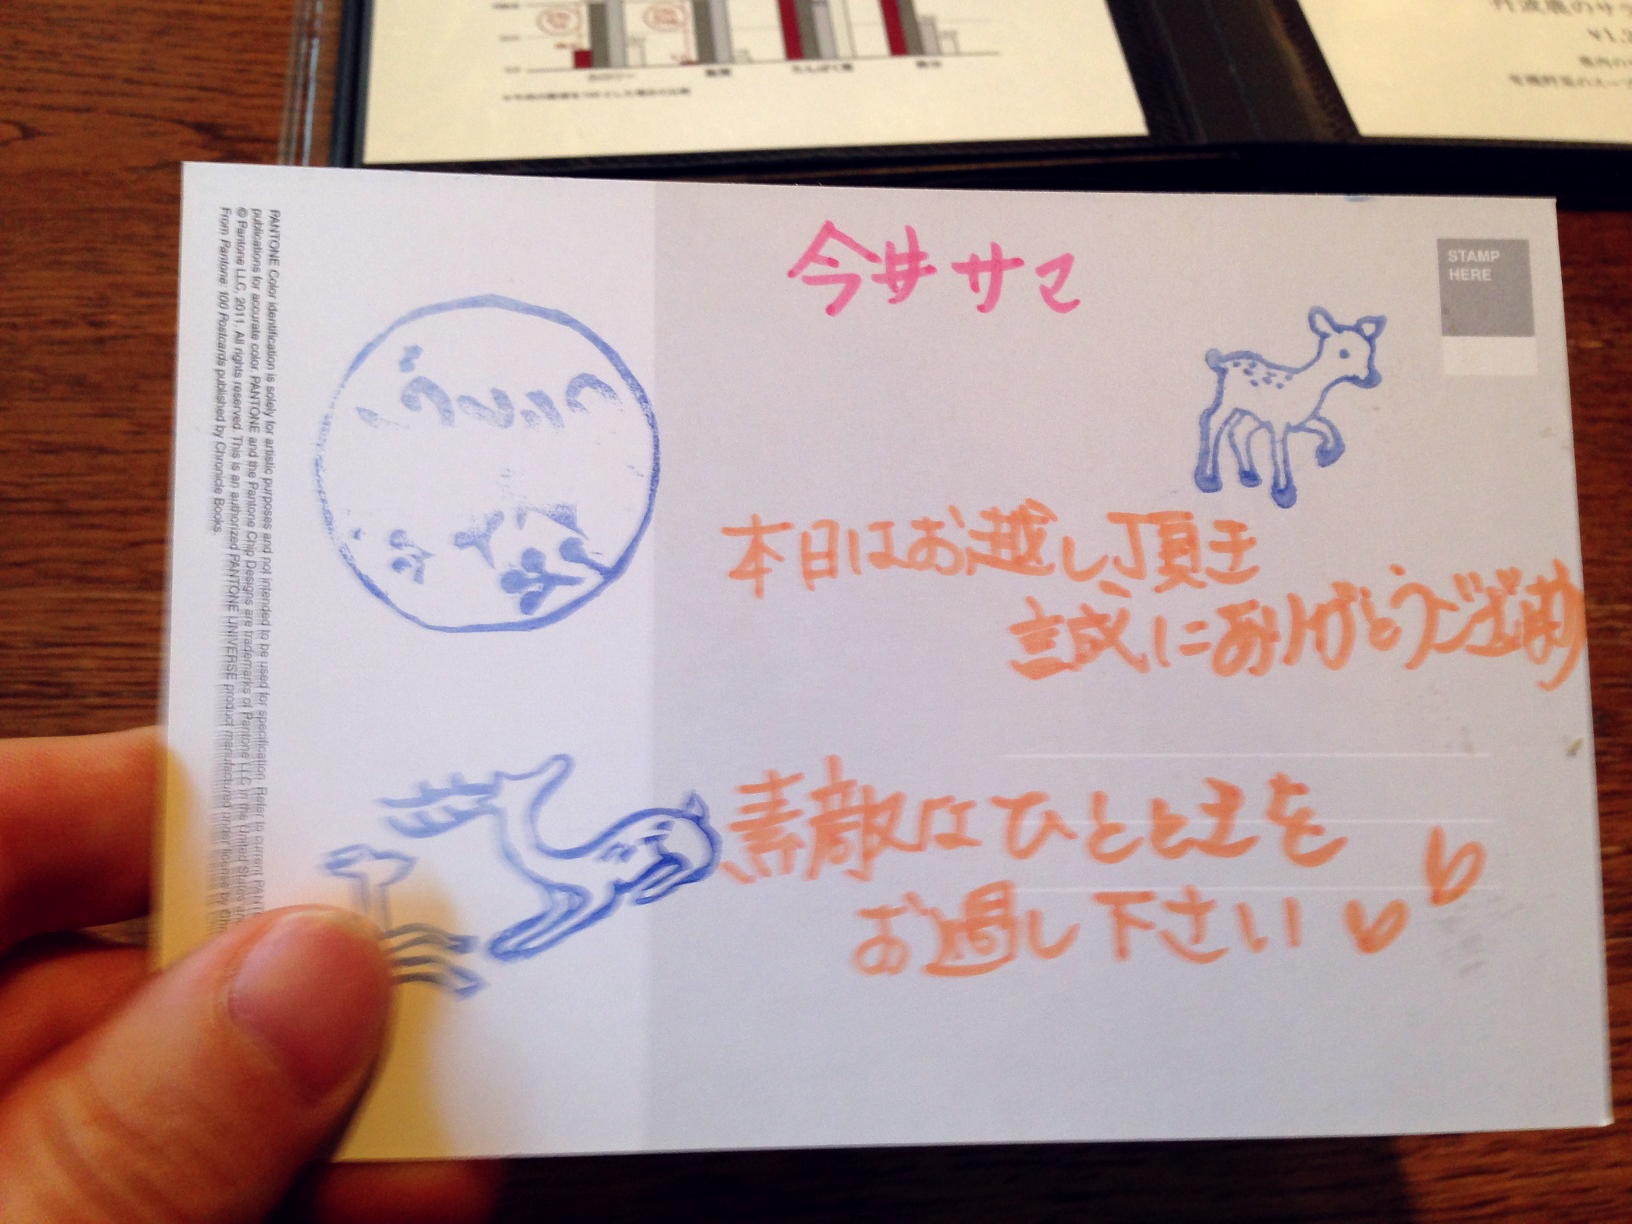 今井サマ
STAMP
HERE
本日はお越し頂き
誠にありがとうございます
素敵なひとときを
お過し下さい
PANTONE Color identification is solely for artistic purposes and not intended to be used for specification. Refer to current PANTONE
publications for accurate color. PANTONE and the Pantone Chip Designs are trademarks of Pantone LLC in the United States and
© Pantone LLC, 2011. All rights reserved. This is an authorized PANTONE UNIVERSE product manufactured under license by Chr
From Pantone: 100 Postcards published by Chronicle Books.